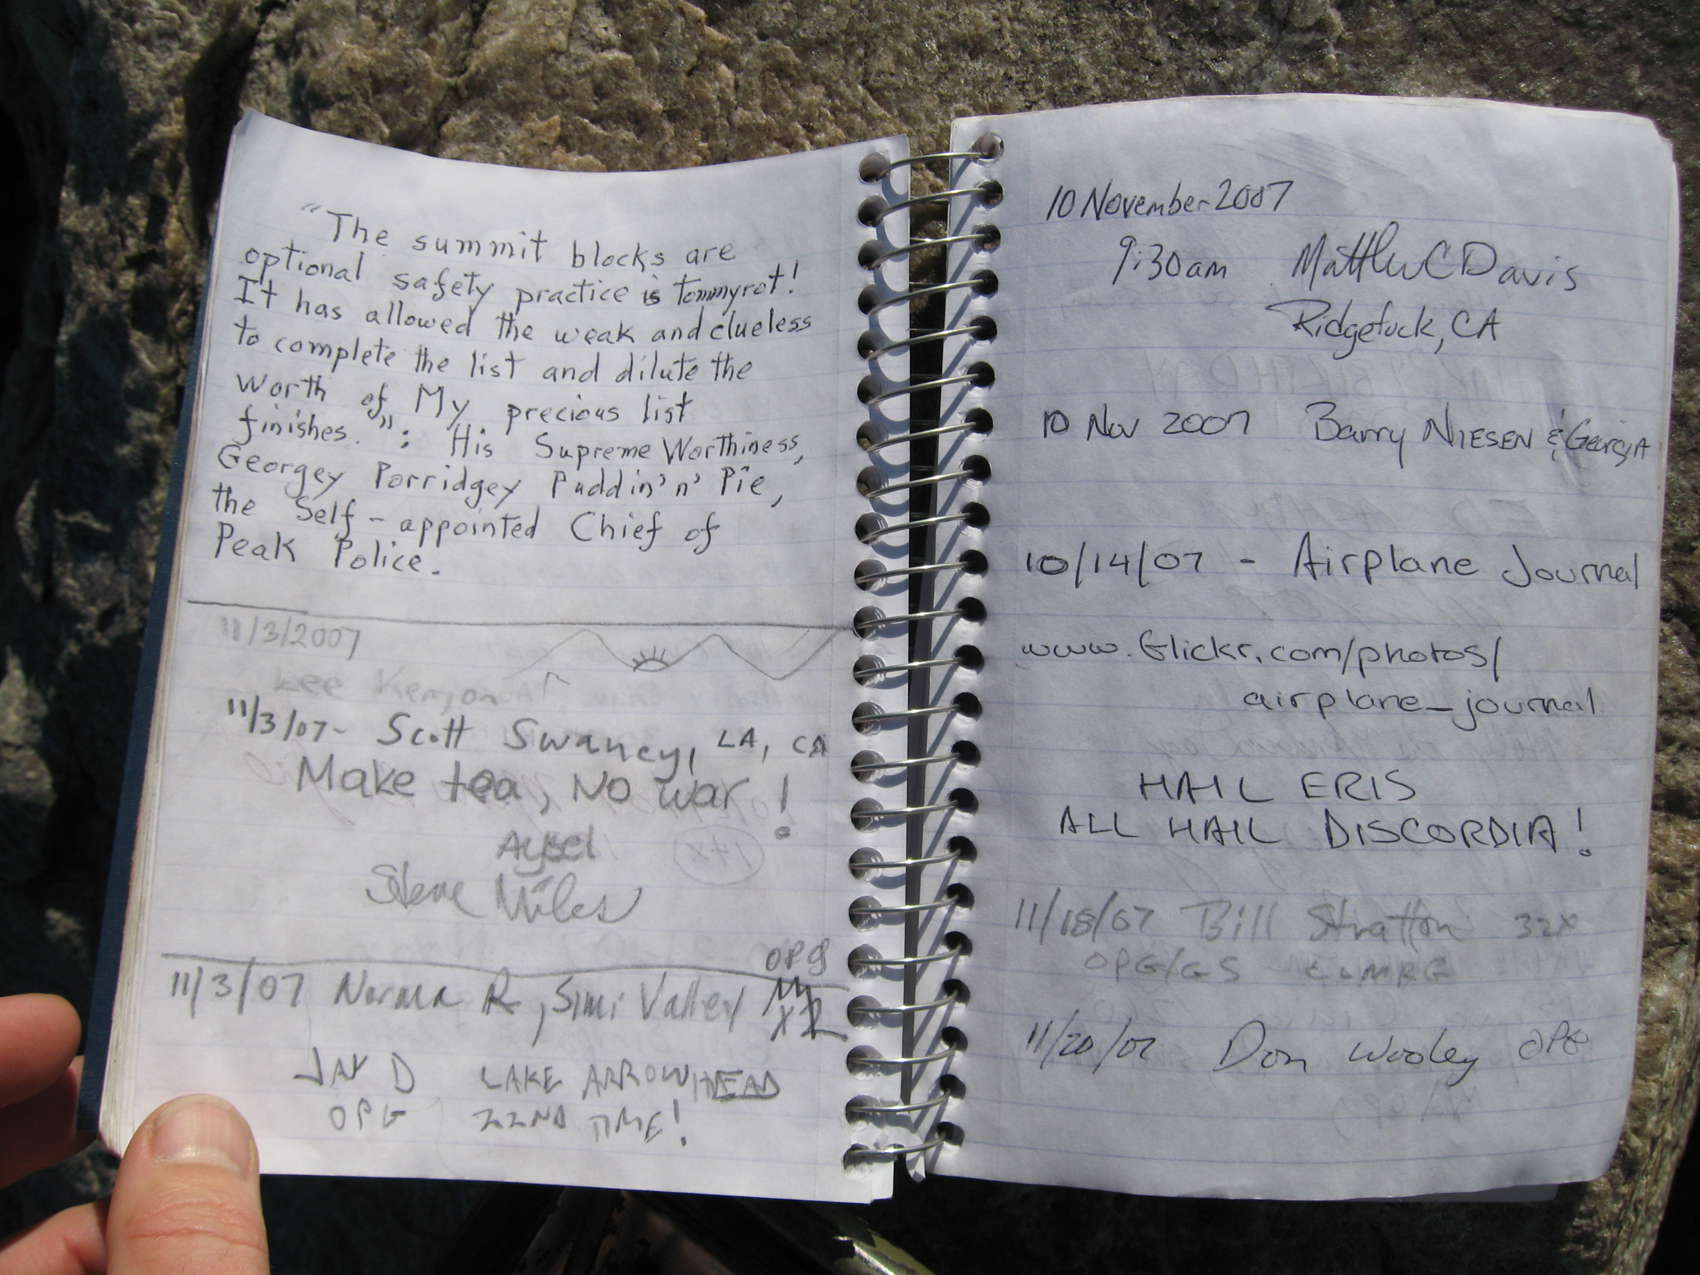 "The summit blocks are
optional safety practice is tommyrot!
It has allowed the weak and clueless
to complete the list and dilute the
worth of My precious list
finishes.": His Supreme Worthiness,
Georgey Porridgey Puddin'n' Pie,
the Self-appointed Chief of
Peak Police.
11/3/2007
Lee Kenyon
11/3/07- Scott Swaney, LA, CA
Make tea, No war!
Aysel
14x
Steve Miles
OPG
11/3/07 Norma R, Simi Valley
JAY D LAKE ARROWHEAD
OPG 22ND TIME!
10 November 2007
9:30am Matthew C Davis
Ridgefuck, CA
10 Nov 2007 Barry NIESEN & Georgia
10/14/07 - Airplane Journal
www.flickr.com/photos/
airplane_journal
HAIL ERIS
ALL HAIL DISCORDIA!
11/18/07 Bill Stratton 32x
OPG/GS
11/20/07 Don Wooley OPG